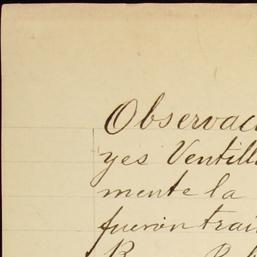 Observac
yes Ventill
mente la
fueron trai